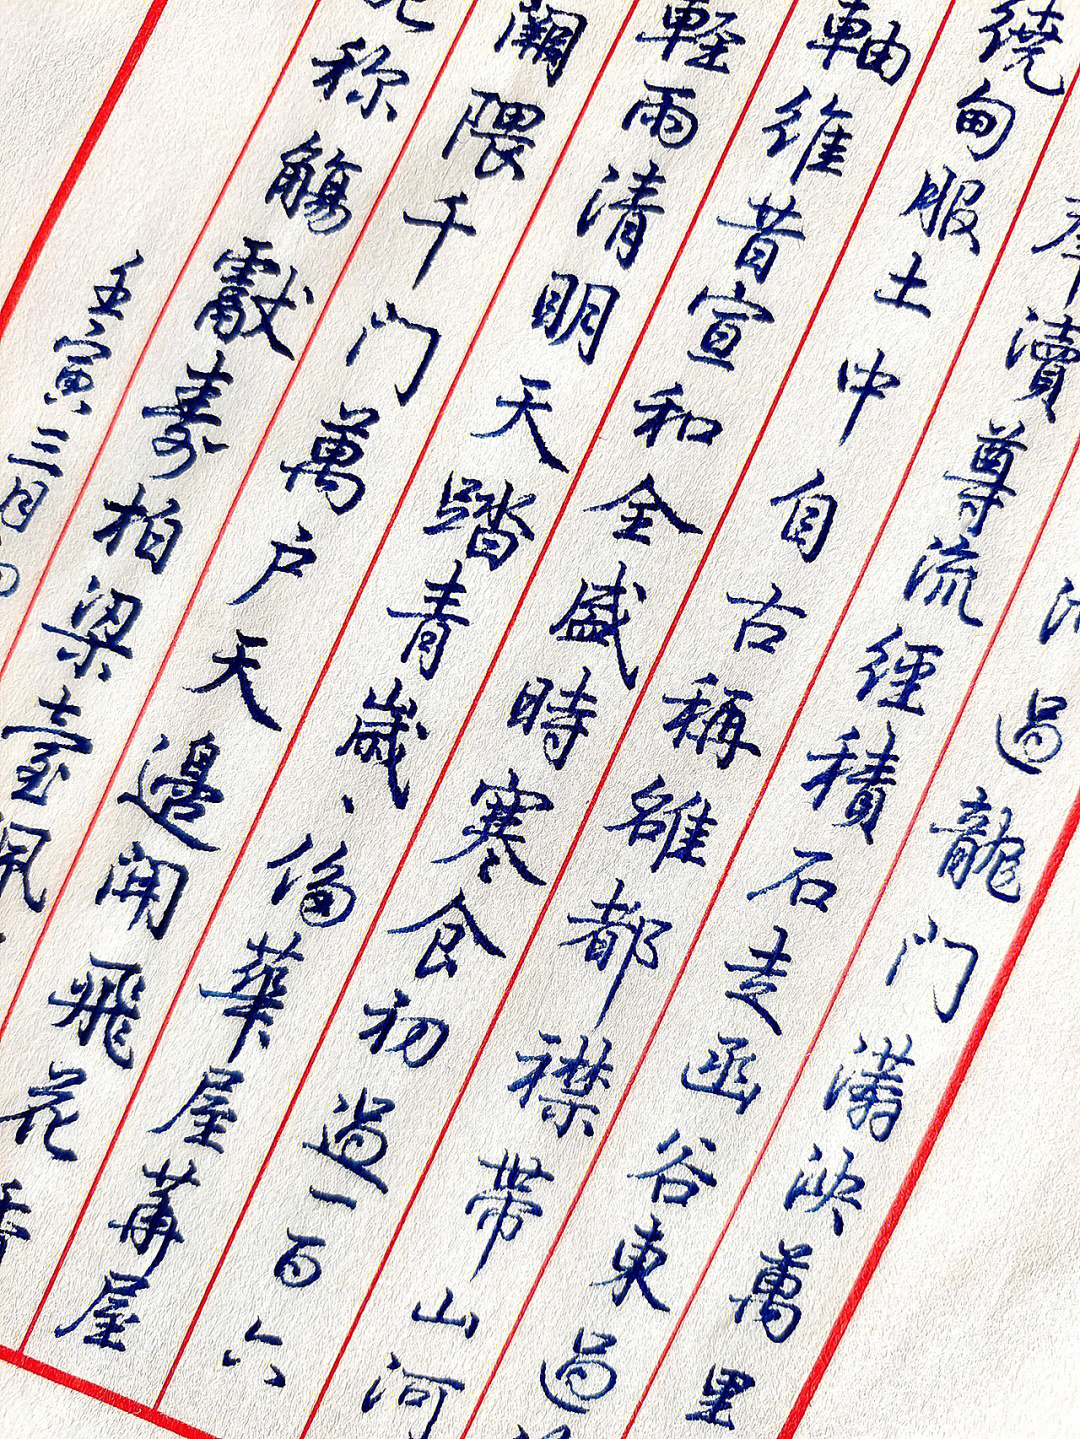 過龍门泱萬里
瀆尊流經積石走函谷東過
繞甸服土中自古稱雒都襟帶山河
軸維昔宣和全盛時寒食初過一百六
輕雨清明天踏青歲〻侈華屋屋
闕隈千门萬户天邊開飛花
称觴獻壽柏梁臺
壬寅三月